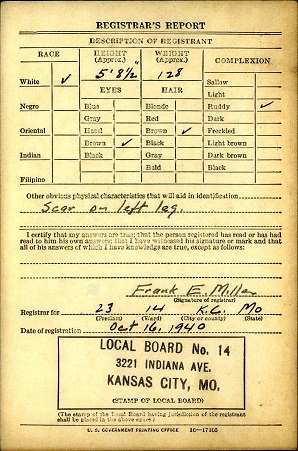 REGISTRAR'S REPORT
DESCRIPTION OF REGISTRANT
RACE HEIGHT (Approx.) WEIGHT (Approx.) COMPLEXION
5' 8½" 128
White ✓ Sallow
EYES HAIR Light
Negro Blue Blonde Ruddy ✓
Gray Red Dark
Oriental Hazel Brown ✓ Freckled
Brown ✓ Black Light brown
Indian Black Gray Dark brown
Bald Black
Filipino
Other obvious physical characteristics that will aid in identification
Scar on left leg.
I certify that my answers are true; that the person registered has read or has had
read to him his own answers; that I have witnessed his signature or mark and that
all of his answers of which I have knowledge are true, except as follows:
Frank E. Miller
(Signature of registrar)
Registrar for 23 14 K.C. Mo
(Precinct) (Ward) (City or county) (State)
Date of registration Oct 16, 1940
LOCAL BOARD No. 14
3221 INDIANA AVE.
KANSAS CITY, MO.
(STAMP OF LOCAL BOARD)
(The stamp of the Local Board having jurisdiction of the registrant
shall be placed in the above space.)
U. S. GOVERNMENT PRINTING OFFICE 16—17105